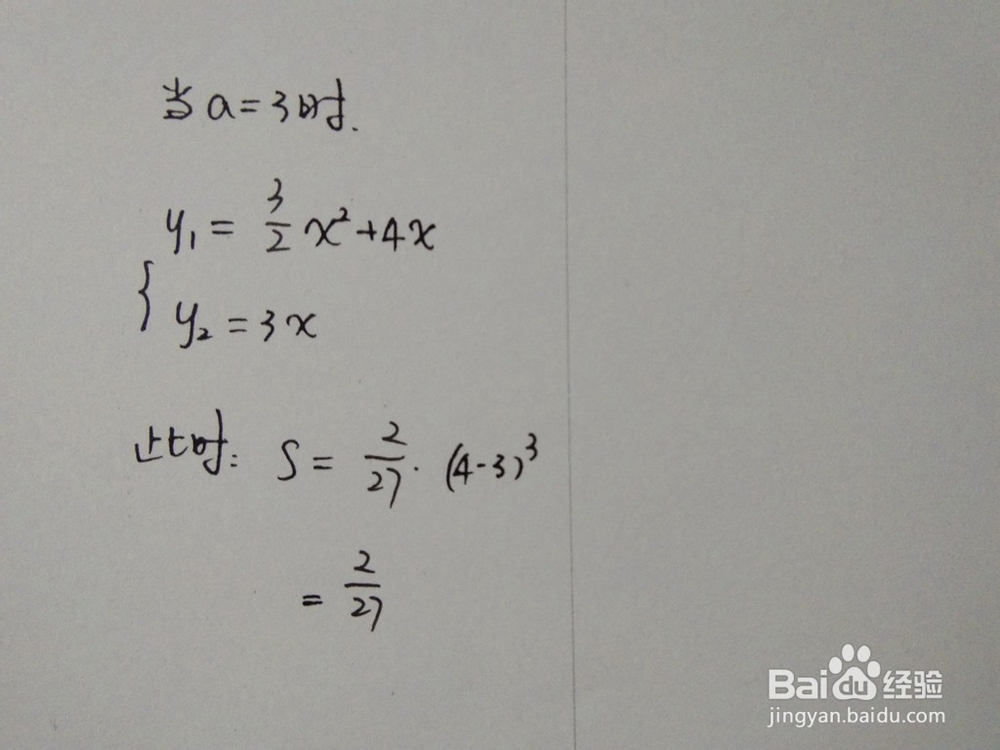 当a=3时.
y₁ = 3/2 x²+4x
{ y₂ = 3x
此时: S = 2/27 · (4-3)³
= 2/27
Baidu经验
jingyan.baidu.com